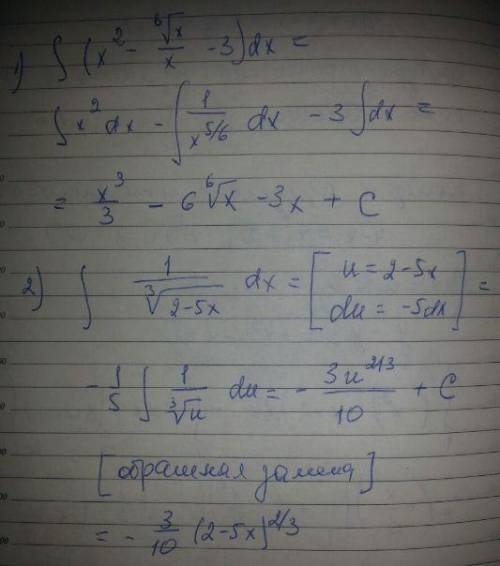 1) ∫ (x² - ⁶√x/x - 3) dx =
∫ x² dx - ∫ 1/x^(5/6) dx - 3 ∫ dx =
= x³/3 - 6 ⁶√x - 3x + C
2) ∫ 1/³√(2-5x) dx = [u = 2-5x
du = -5dx] =
-1/5 ∫ 1/³√u du = - 3u^(2/3)/10 + C
[обратная замена]
= - 3/10 (2-5x)^(2/3)